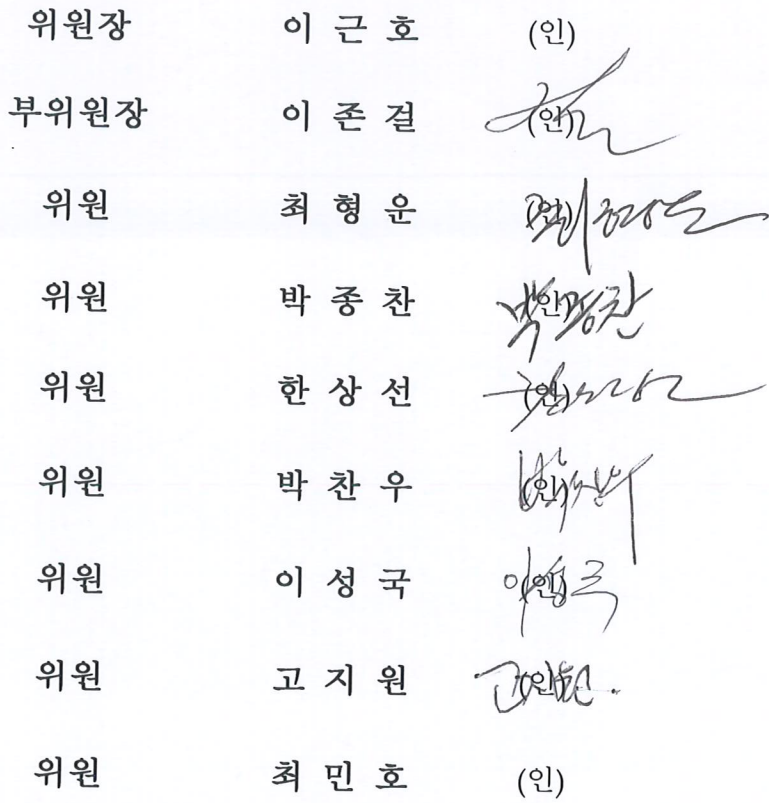 위원장 이 근 호 (인)
부위원장 이 존 걸 (인)
위원 최 형 운 (인)
위원 박 종 찬 (인) 박종찬
위원 한 상 선 (인)
위원 박 찬 우 (인)
위원 이 성 국 (인)
위원 고 지 원 (인)
위원 최 민 호 (인)